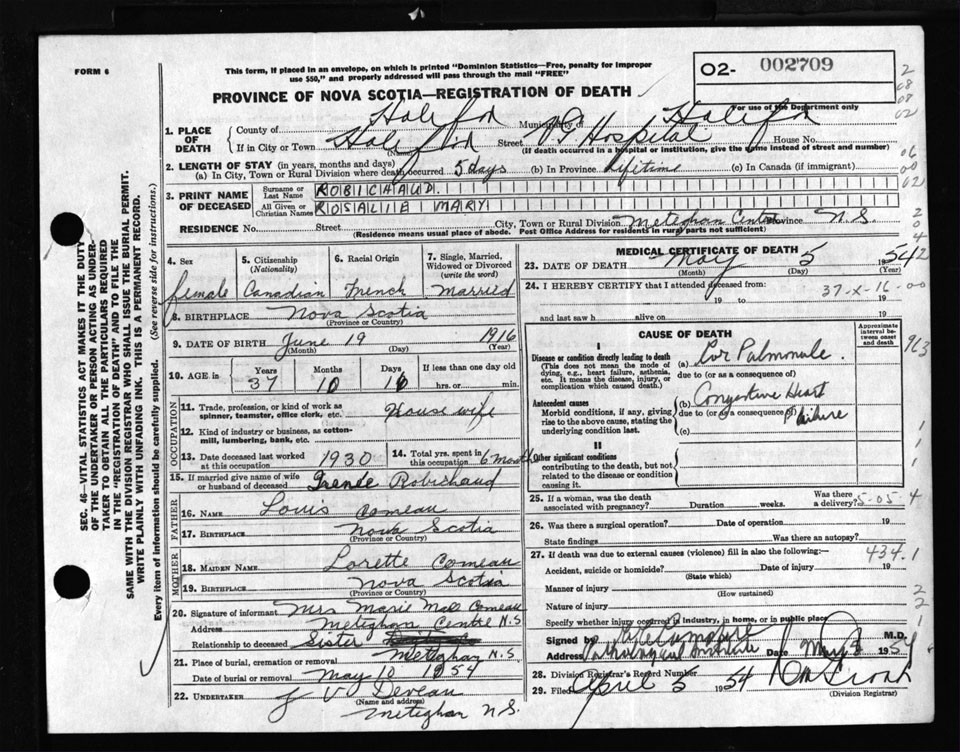 FORM 6
This form, if placed in an envelope, on which is printed "Dominion Statistics—Free, penalty for improper use $50," and properly addressed will pass through the mail "FREE"
O2- 002709
For use of the Department only
PROVINCE OF NOVA SCOTIA—REGISTRATION OF DEATH
1. PLACE OF DEATH County of Halifax Municipality of Halifax
If in City or Town Halifax (Name) Street V.G. Hospital House No.
(If death occurred in a hospital or institution, give the name instead of street and number)
2. LENGTH OF STAY (in years, months and days)
(a) In City, Town or Rural Division where death occurred 5 days (b) In Province Lifetime (c) In Canada (if immigrant)
3. PRINT NAME OF DECEASED Surname or Last Name ROBICHAUD.
All Given or Christian Names ROSALIE MARY
RESIDENCE No. Street City, Town or Rural Division Meteghan Centre Province N.S.
(Residence means usual place of abode. Post Office Address for residents in rural parts not sufficient)
4. Sex female
5. Citizenship (Nationality) Canadian
6. Racial Origin French
7. Single, Married, Widowed or Divorced (write the word) Married
8. BIRTHPLACE Nova Scotia
(Province or Country)
9. DATE OF BIRTH June 19 1916
(Month) (Day) (Year)
10. AGE in Years 37 Months 10 Days 16 If less than one day old hrs. or min.
OCCUPATION
11. Trade, profession, or kind of work as spinner, teamster, office clerk, etc. House wife
12. Kind of industry or business, as cotton-mill, lumbering, bank, etc.
13. Date deceased last worked at this occupation 1930
14. Total yrs. spent in this occupation 6 month
15. If married give name of wife or husband of deceased Irenée Robichaud
FATHER
16. NAME Louis Comeau
17. BIRTHPLACE Nova Scotia
(Province or Country)
MOTHER
18. MAIDEN NAME Lorette Comeau
19. BIRTHPLACE Nova Scotia
(Province or Country)
20. Signature of informant Mrs Marie Comeau
Address Meteghan Centre N.S
Relationship to deceased Sister
21. Place of burial, cremation or removal Meteghan N.S
Date of burial or removal May 1954
22. UNDERTAKER J V Deveau
(Name and address)
Meteghan N.S.
MEDICAL CERTIFICATE OF DEATH
23. DATE OF DEATH May 5 1954
(Month) (Day) (Year)
24. I HEREBY CERTIFY that I attended deceased from:
19 to 19
37-X-16-00
and last saw h alive on 19
CAUSE OF DEATH
Approximate interval between onset and death
I
Disease or condition directly leading to death
(This does not mean the mode of dying, e.g., heart failure, asthenia, etc. It means the disease, injury, or complication which caused death.)
(a) Cor Palmonale.
due to (or as a consequence of)
Antecedent causes
Morbid conditions, if any, giving rise to the above cause, stating the underlying condition last.
(b) Congestive Heart Failure
due to (or as a consequence of)
(c)
II
Other significant conditions
contributing to the death, but not related to the disease or condition causing it.
25. If a woman, was the death associated with pregnancy? Duration weeks. Was there a delivery?
5-05-4
26. Was there a surgical operation? Date of operation 19
State findings Was there an autopsy?
27. If death was due to external causes (violence) fill in also the following:—
434.1
Accident, suicide or homicide? Date of injury 19
(State which)
Manner of injury
(How sustained)
Nature of injury
Specify whether injury occurred in industry, in home, or in public place
Signed by M.D.
Address Pathological Institute Date May 195
28. Division Registrar's Record Number
29. Filed April 5 1954
(Division Registrar)
SEC. 46—VITAL STATISTICS ACT MAKES IT THE DUTY OF THE UNDERTAKER OR PERSON ACTING AS UNDERTAKER TO OBTAIN ALL THE PARTICULARS REQUIRED IN THE "REGISTRATION OF DEATH" AND TO FILE THE SAME WITH THE DIVISION REGISTRAR WHO SHALL ISSUE THE BURIAL PERMIT. WRITE PLAINLY WITH UNFADING INK. THIS IS A PERMANENT RECORD.
Every item of information should be carefully supplied. (See reverse side for instructions.)